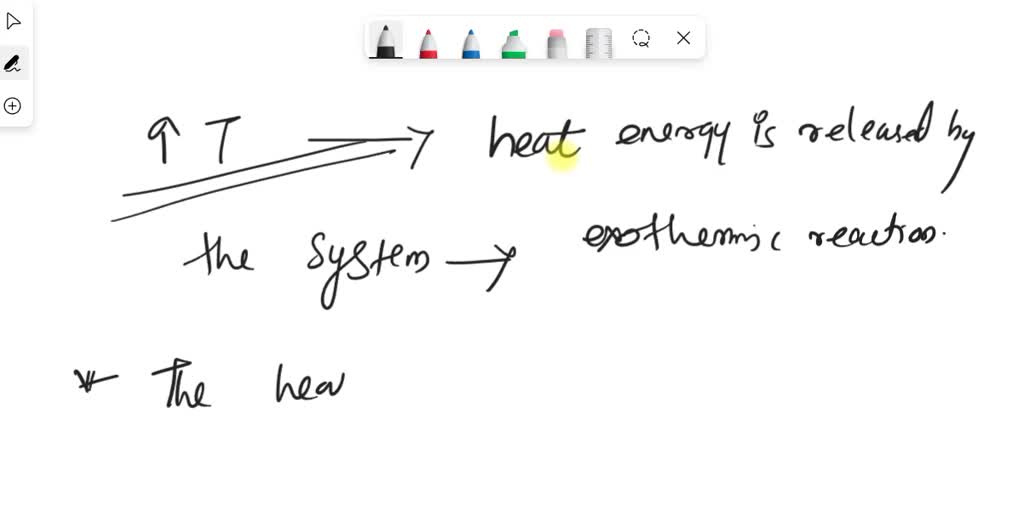 ↑ T → heat energy is released by
the system → exothermic reaction.
* The hea